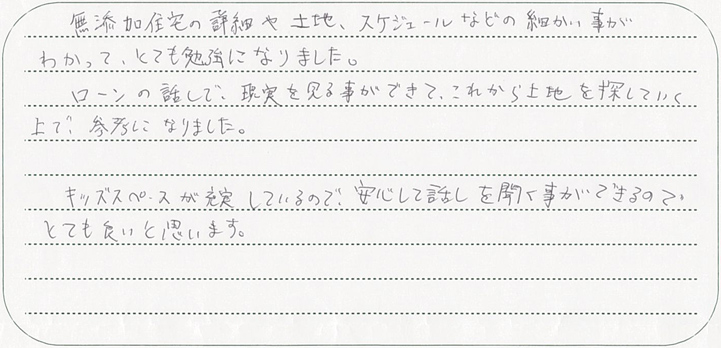 無添加住宅の詳細や土地、スケジュールなどの細かい事が
わかって、とても勉強になりました。
ローンの話しで、現実を見る事ができて、これから土地を探していく
上で、参考になりました。
キッズスペースが充実しているので、安心して話しを聞く事ができるので、
とても良いと思います。